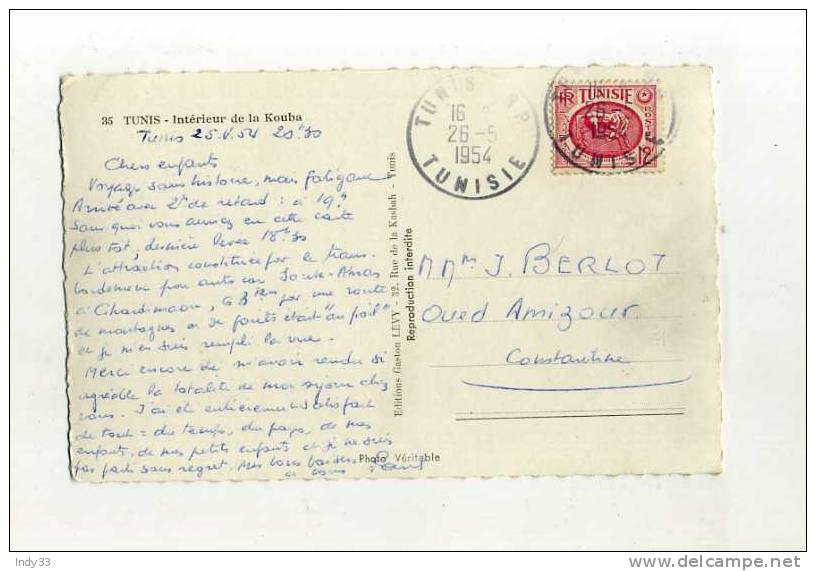 35 TUNIS - Intérieur de la Kouba
Tunis 25.V.54 20h30
Chers enfants
Voyage sans histoire, mais fatigant
Arrivé avec 2h de retard : à 19h
Sans quoi vous auriez eu cette carte
plus tôt, dernière levée 18h30
L'attraction constituée par le trans-
bordement par auto car Souk-Ahras
à Ghardimaou, 68 km par une route
de montagnes et de forêts était "au poil"
et je m'en suis rempli la vue.
Merci encore de m'avoir rendu si
agréable la totalité de mon séjour chez
vous. J'ai été entièrement satisfait
de tout : du temps, du pays, de mes
enfants, de mes petits enfants et je ne suis
pas parti sans regret. Mes bons baisers
à tous
Editions Gaston LEVY - 32, Rue de la Kasbah - Tunis
Reproduction interdite
Photo Véritable
TUNIS R.P.
16
26-5
1954
TUNISIE
RF
TUNISIE
POSTES
12F
26-5
1954
TUNISIE
M Mme J. BERLOT
Oued Amizour
Constantine
Indy33
delcampe.net